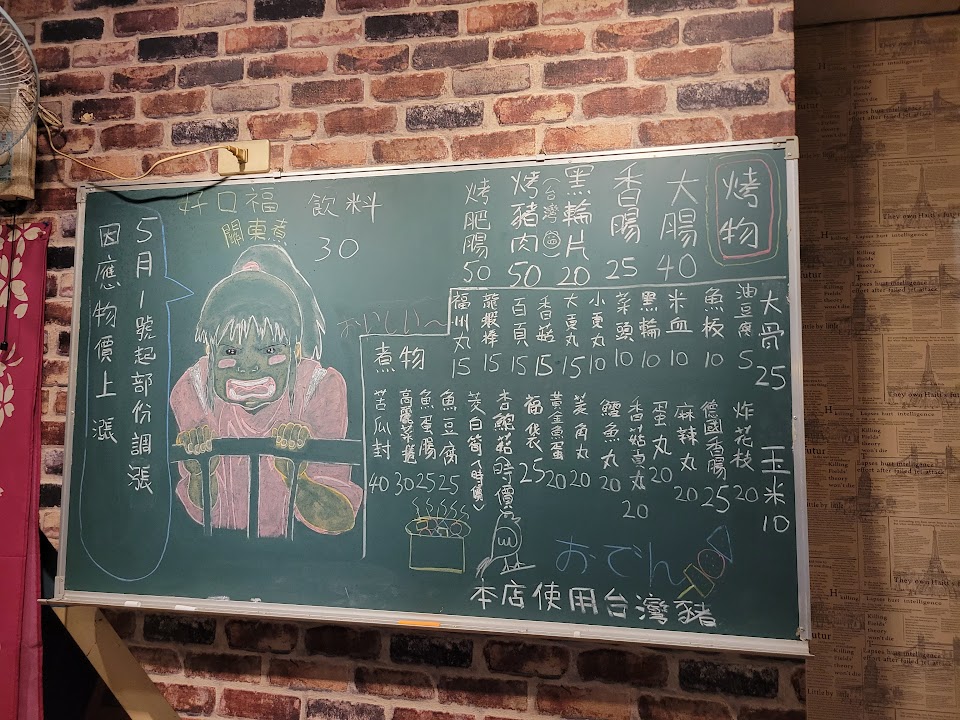 烤物
大腸 40
香腸 25
黑輪片 20
烤豬肉 (台灣) 50
烤肥腸 50
飲料 30
好口福
關東煮
5月1號起部份調漲
因應物價上漲
おいしい～
煮物
大骨 25
油豆腐 5
魚板 10
米血 10
黑輪 10
菜頭 10
小貢丸 10
大貢丸 15
香菇 15
百頁 15
龍蝦棒 15
福州丸 15
玉米 10
炸花枝 20
德國香腸 25
麻辣丸 20
蛋丸 20
香菇貢丸 20
鱈魚丸 20
芙角丸 20
黃金魚蛋 20
福袋 25
杏鮑菇 時價
茭白筍（時價）
魚豆腐 25
魚蛋腸 25
高麗菜捲 30
苦瓜封 40
おでん
本店使用台灣豬